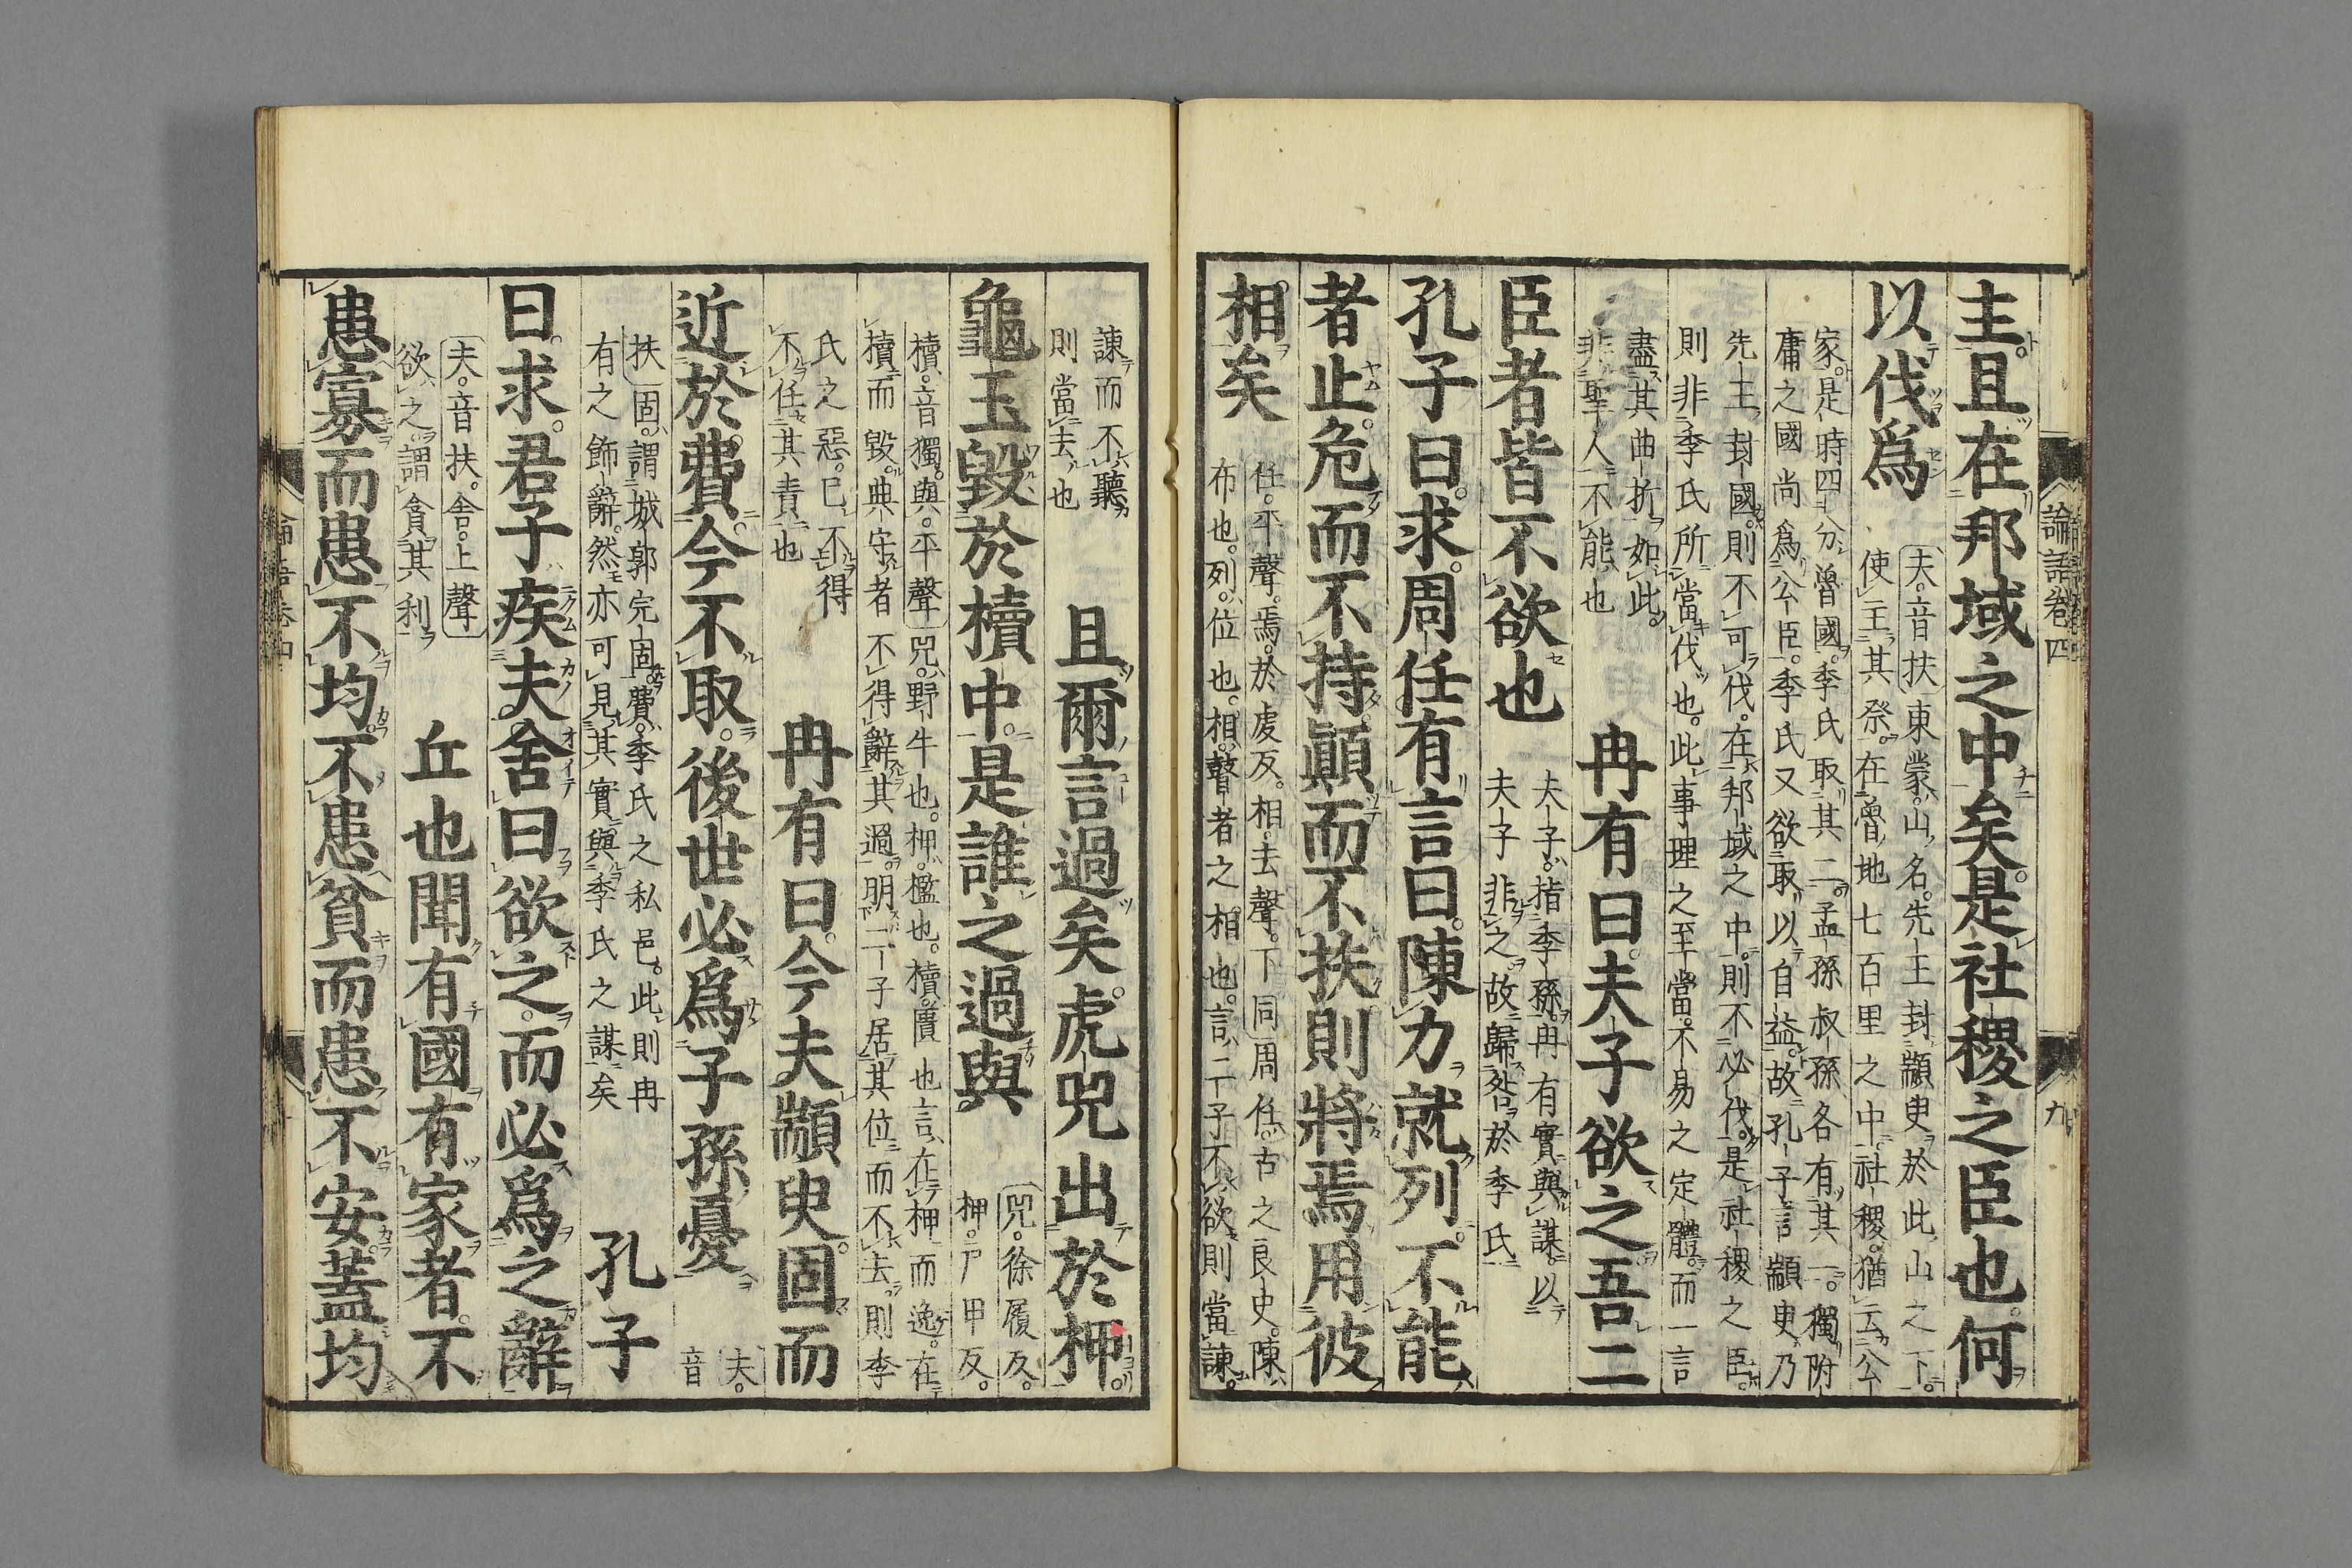 論語卷四　九
主。且在邦域之中矣。是社稷之臣也。何
以伐爲
夫。音扶　東蒙。山名。先王封顓臾於此山之下。
使主其祭。在魯地七百里之中。社稷。猶云公
家。是時四分魯國。季氏取其二。孟孫叔孫各有其一。獨附
庸之國尚爲公臣。季氏又欲取以自益。故孔子言顓臾乃
先王封國。則不可伐。在邦域之中。則不必伐。是社稷之臣。
則非季氏所當伐也。此事理之至當。不易之定體。而一言
盡其曲折如此。
非聖人不能也
冉有曰。夫子欲之。吾二
臣者皆不欲也
夫子。指季孫。冉有實與謀。以
夫子非之。故歸咎於季氏
孔子曰。求。周任有言曰。陳力就列。不能
者止。危而不持。顚而不扶。則將焉用彼
相矣
任。平聲。焉。於虔反。相。去聲。下同　周任。古之良史。陳。
布也。列。位也。相。瞽者之相也。言二子不欲。則當諫。
諫而不聽。
則當去也
且爾言過矣。虎兕出於柙。
龜玉毀於櫝中。是誰之過與。
兕。徐履反。
柙。戶甲反。
櫝。音獨。與。平聲　兕。野牛也。柙。檻也。櫝。匱也。言在柙而逸。在
櫝而毀。典守者不得辭其過。明二子居其位而不去。則季
氏之惡。已不得
不任其責也
冉有曰。今夫顓臾。固而
近於費。今不取。後世必爲子孫憂
夫。
音
扶　固。謂城郭完固。費。季氏之私邑。此則冉
有之飾辭。然亦可見其實與季氏之謀矣
孔子
曰。求。君子疾夫。舍曰欲之。而必爲之辭
夫。音扶。舍。上聲
欲之。謂貪其利
丘也聞有國有家者。不
患寡而患不均。不患貧而患不安。蓋均
論語卷四